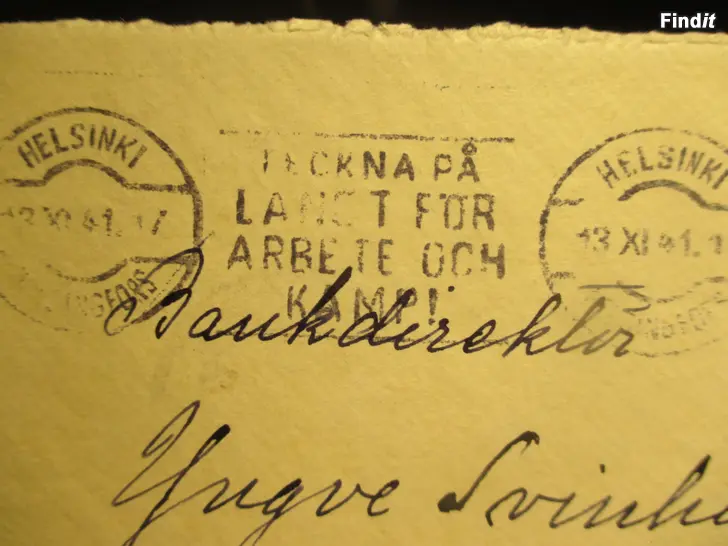 Findit
HELSINKI
13 XI 41.17
HELSINGFORS
TECKNA PÅ
LANET FOR
ARBETE OCH
KAMP!
HELSINKI
13 XI 41.1
Bankdirektor
Yngve Svinhu